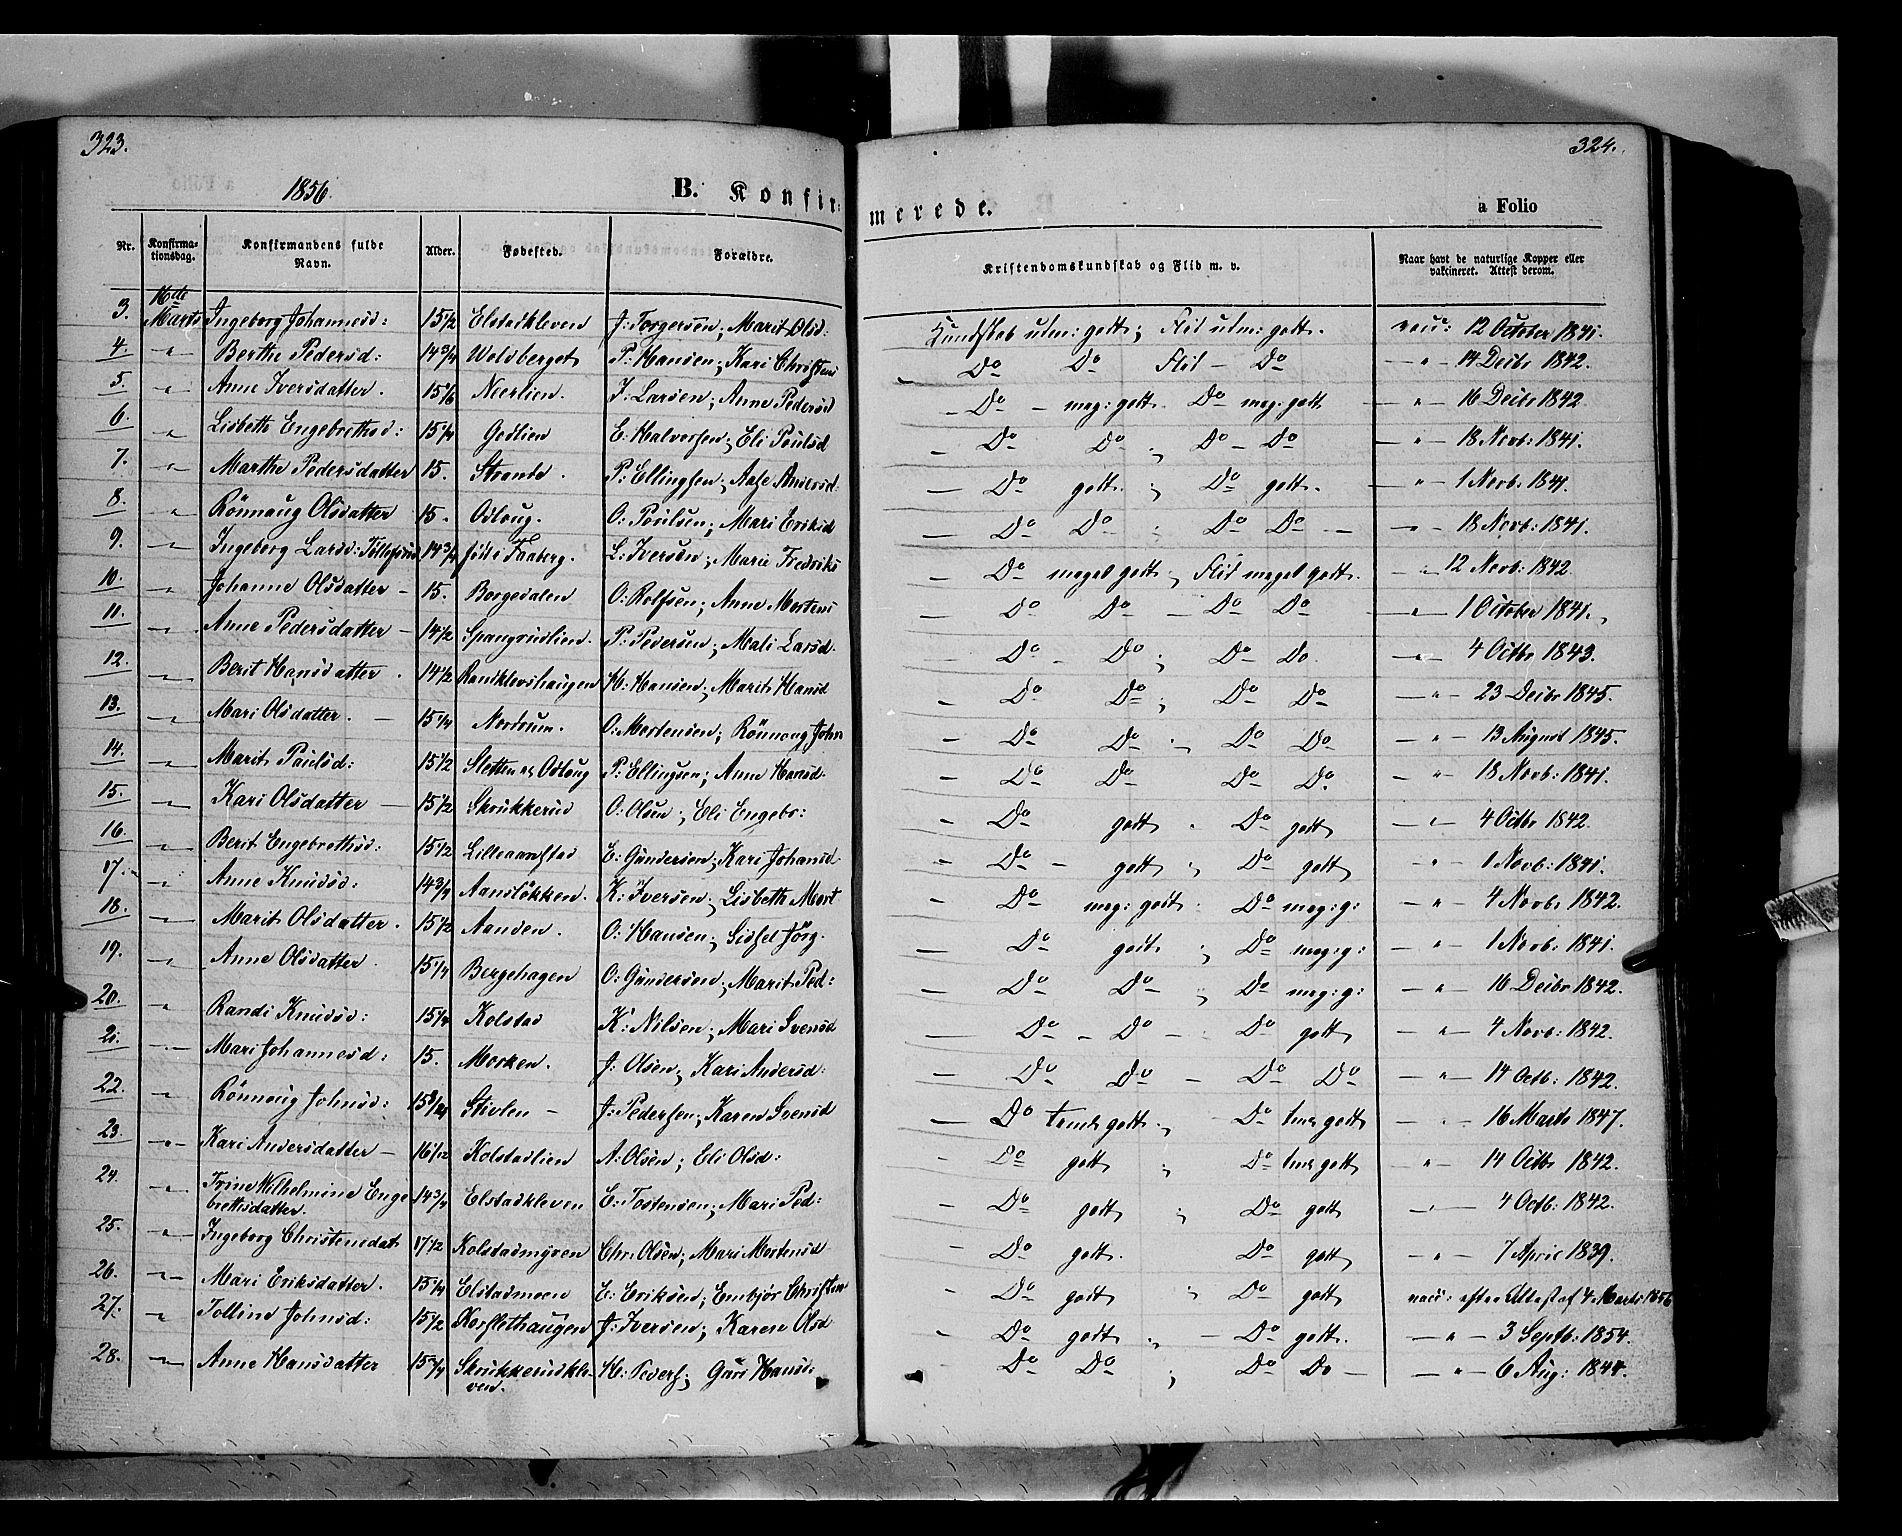 323.
324.
1856
B. Konfir-
merede.
a Folio
Nr. Konfirmationsdag. Konfirmandens fulde Navn. Alder. Fødested. Forældre. Kristendomskundskab og Flid m. v. Naar havt de naturlige Kopper eller vakcineret. Attest derom.
3. 16de Marts Ingeborg Johannesd: 15 1/2 Elstadkleven J: Torgersen; Marit Olsd: Kundskab utm: godt; Flid utm: godt. vacc: 12 October 1841.
4. " Berthe Pedersd: 14 3/4 Wolsberget P: Hansen; Kari Christens Do Do Flid - Do " 14 Decbr 1842.
5. " Anne Iversdatter. 15 1/6 Neerlien. I. Larsen; Anne Pedersd Do - meg: godt. Do meg: godt " 16 Decbr 1842
6. " Lisbeth Engebrethsd: 15 1/4 Godlien E: Halvorsen; Eli Poulsd Do Do ; Do - Do " 18 Novb: 1841.
7. " Marthe Pedersdatter 15. Strande. P: Ellingsen; Aase Andersd: Do godt. ; Do godt. " 1 Novb: 1841.
8. " Rönnaug Olsdatter 15. Odloug. O: Poulsen; Mari Eriksd Do Do ; Do Do - " 18 Novb: 1841.
9. " Ingeborg Larsd: 14 3/4 född i Faaberg. L: Iversen; Marie Fredriks Do meget godt; Flid meget godt. " 12 Novb: 1842
10. " Johanne Olsdatter - 15. Borgedalen O: Rolfsen; Anne Mortens Do Do - Do Do " 1 October 1841.
11. " Anne Pedersdatter - 14 1/2 Spangrudlien. P: Pedersen; Mali Larsd. Do - Do ; Do Do " 4 Octbr 1843.
12. " Berit Hansdatter. 14 1/2 Randklevshaugen H: Hansen; Marit Hansd Do Do ; Do Do " 23 Decbr 1845.
13. " Mari Olsdatter. - 15 1/4 Nordrum. O: Mortensen; Rönnoug John Do Do ; Do Do " 13 August 1845.
14. " Marit Poulsd: 15 1/2 Sletten Odloug P: Ellingsen; Anne Hansd. Do Do Do Do. " 18 Novb: 1841.
15. " Kari Olsdatter - 15 1/2 Skrukkerud O: Olsen; Eli Engebr: Do godt. Do godt " 4 Octbr 1842.
16. " Berit Engebrethsd: 15 1/2 Lilleaanstad E: Gundersen; Kari Johansd. Do - godt ; Do godt " 1 Novb: 1841.
17. " Anne Knudsd: 14 3/4 Aanslökken. K: Iversen; Lisbeth Mort Do meg: godt. Do meg: g: " 4 Novbr 1842.
18. " Marit Olsdatter. 15 1/2 Aanden. O: Hansen; Sidsel Jörg. Do godt ; Do meg: g: " 1 Novb: 1841.
19. " Anne Olsdatter. 15 1/4 Bergehagen O: Gundersen; Marit Ped: Do Do - ; Do meg: g: " 16 Decbr 1842.
20. " Randi Knudsd: 15 1/4 Kolstad K: Nilsen; Mari Svensd Do - Do - Do godt " 4 Novb: 1842.
21. " Mari Johannesd: 15. Morken. J: Olsen; Kari Andersd: Do Do - Do Do " 14 Octb: 1842.
22. " Rönnoug Johnsd: Stivlen - J: Pedersen; Karen Svensd Do temt godt ; Do tmt godt " 16 Marts 1847.
23. " Kari Andersdatter - 16 1/12 Kolstadlien A: Olsen; Eli Olsd: Do godt ; Do tmt godt " 14 Octbr 1842.
24. " Trine Wilhelmine Engebrettsdatter. 14 3/4 Elstadkleven E: Tostensen; Mari Ped: Do godt ; Do godt " 4 Octb: 1842.
25. " Ingeborg Christensdat 17 1/2 Kolstadmyren Chr: Olsen; Mari Mortensd Do godt. Do godt " 7 April 1839.
26. " Mari Eriksdatter. 15 1/4 Elstadmoen E: Eriksen; Embjör Christen Do godt ; Do godt vacc: efter Attest af 4 Marts 1856
27. " Tolline Johnsd: 15 1/2 Korslethaugen J: Iversen; Karen Olsd Do godt ; - Do godt. " 3 Septb: 1854.
28. " Anne Hansdatter 15 3/4 Skrukkerudkleven. H: Peders; Guri Hansd: Do Do ; Do Do - " 6 Aug: 1844.